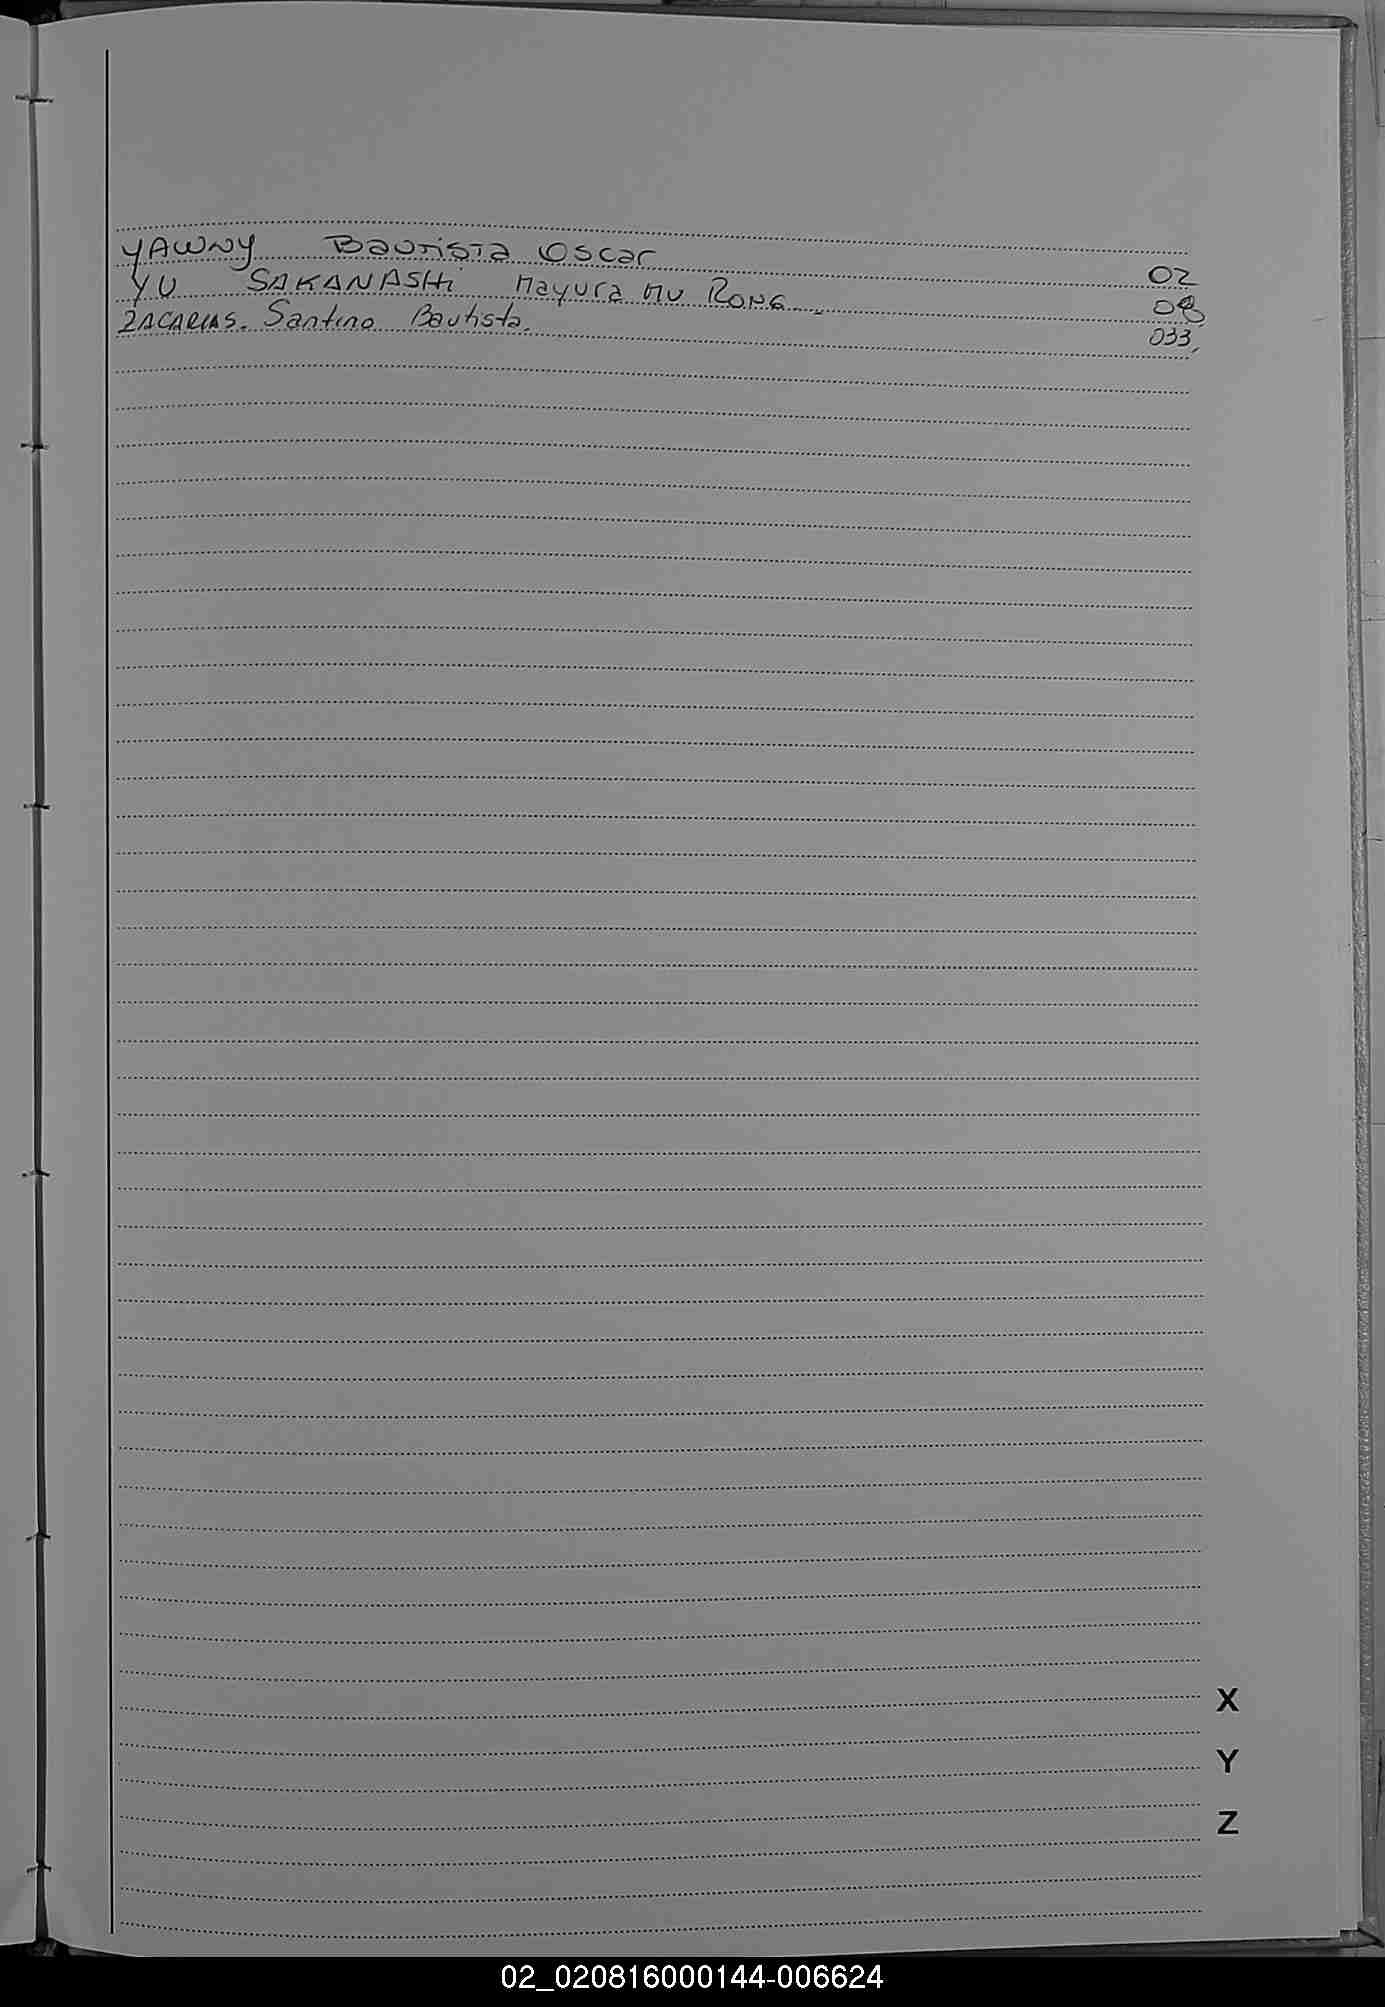 YAWNY Bautista Oscar 02
YU SAKANASHI Mayura Mu Rong 08
ZACARIAS. Santino Bautista. 033,
X
Y
Z
02_020816000144-006624